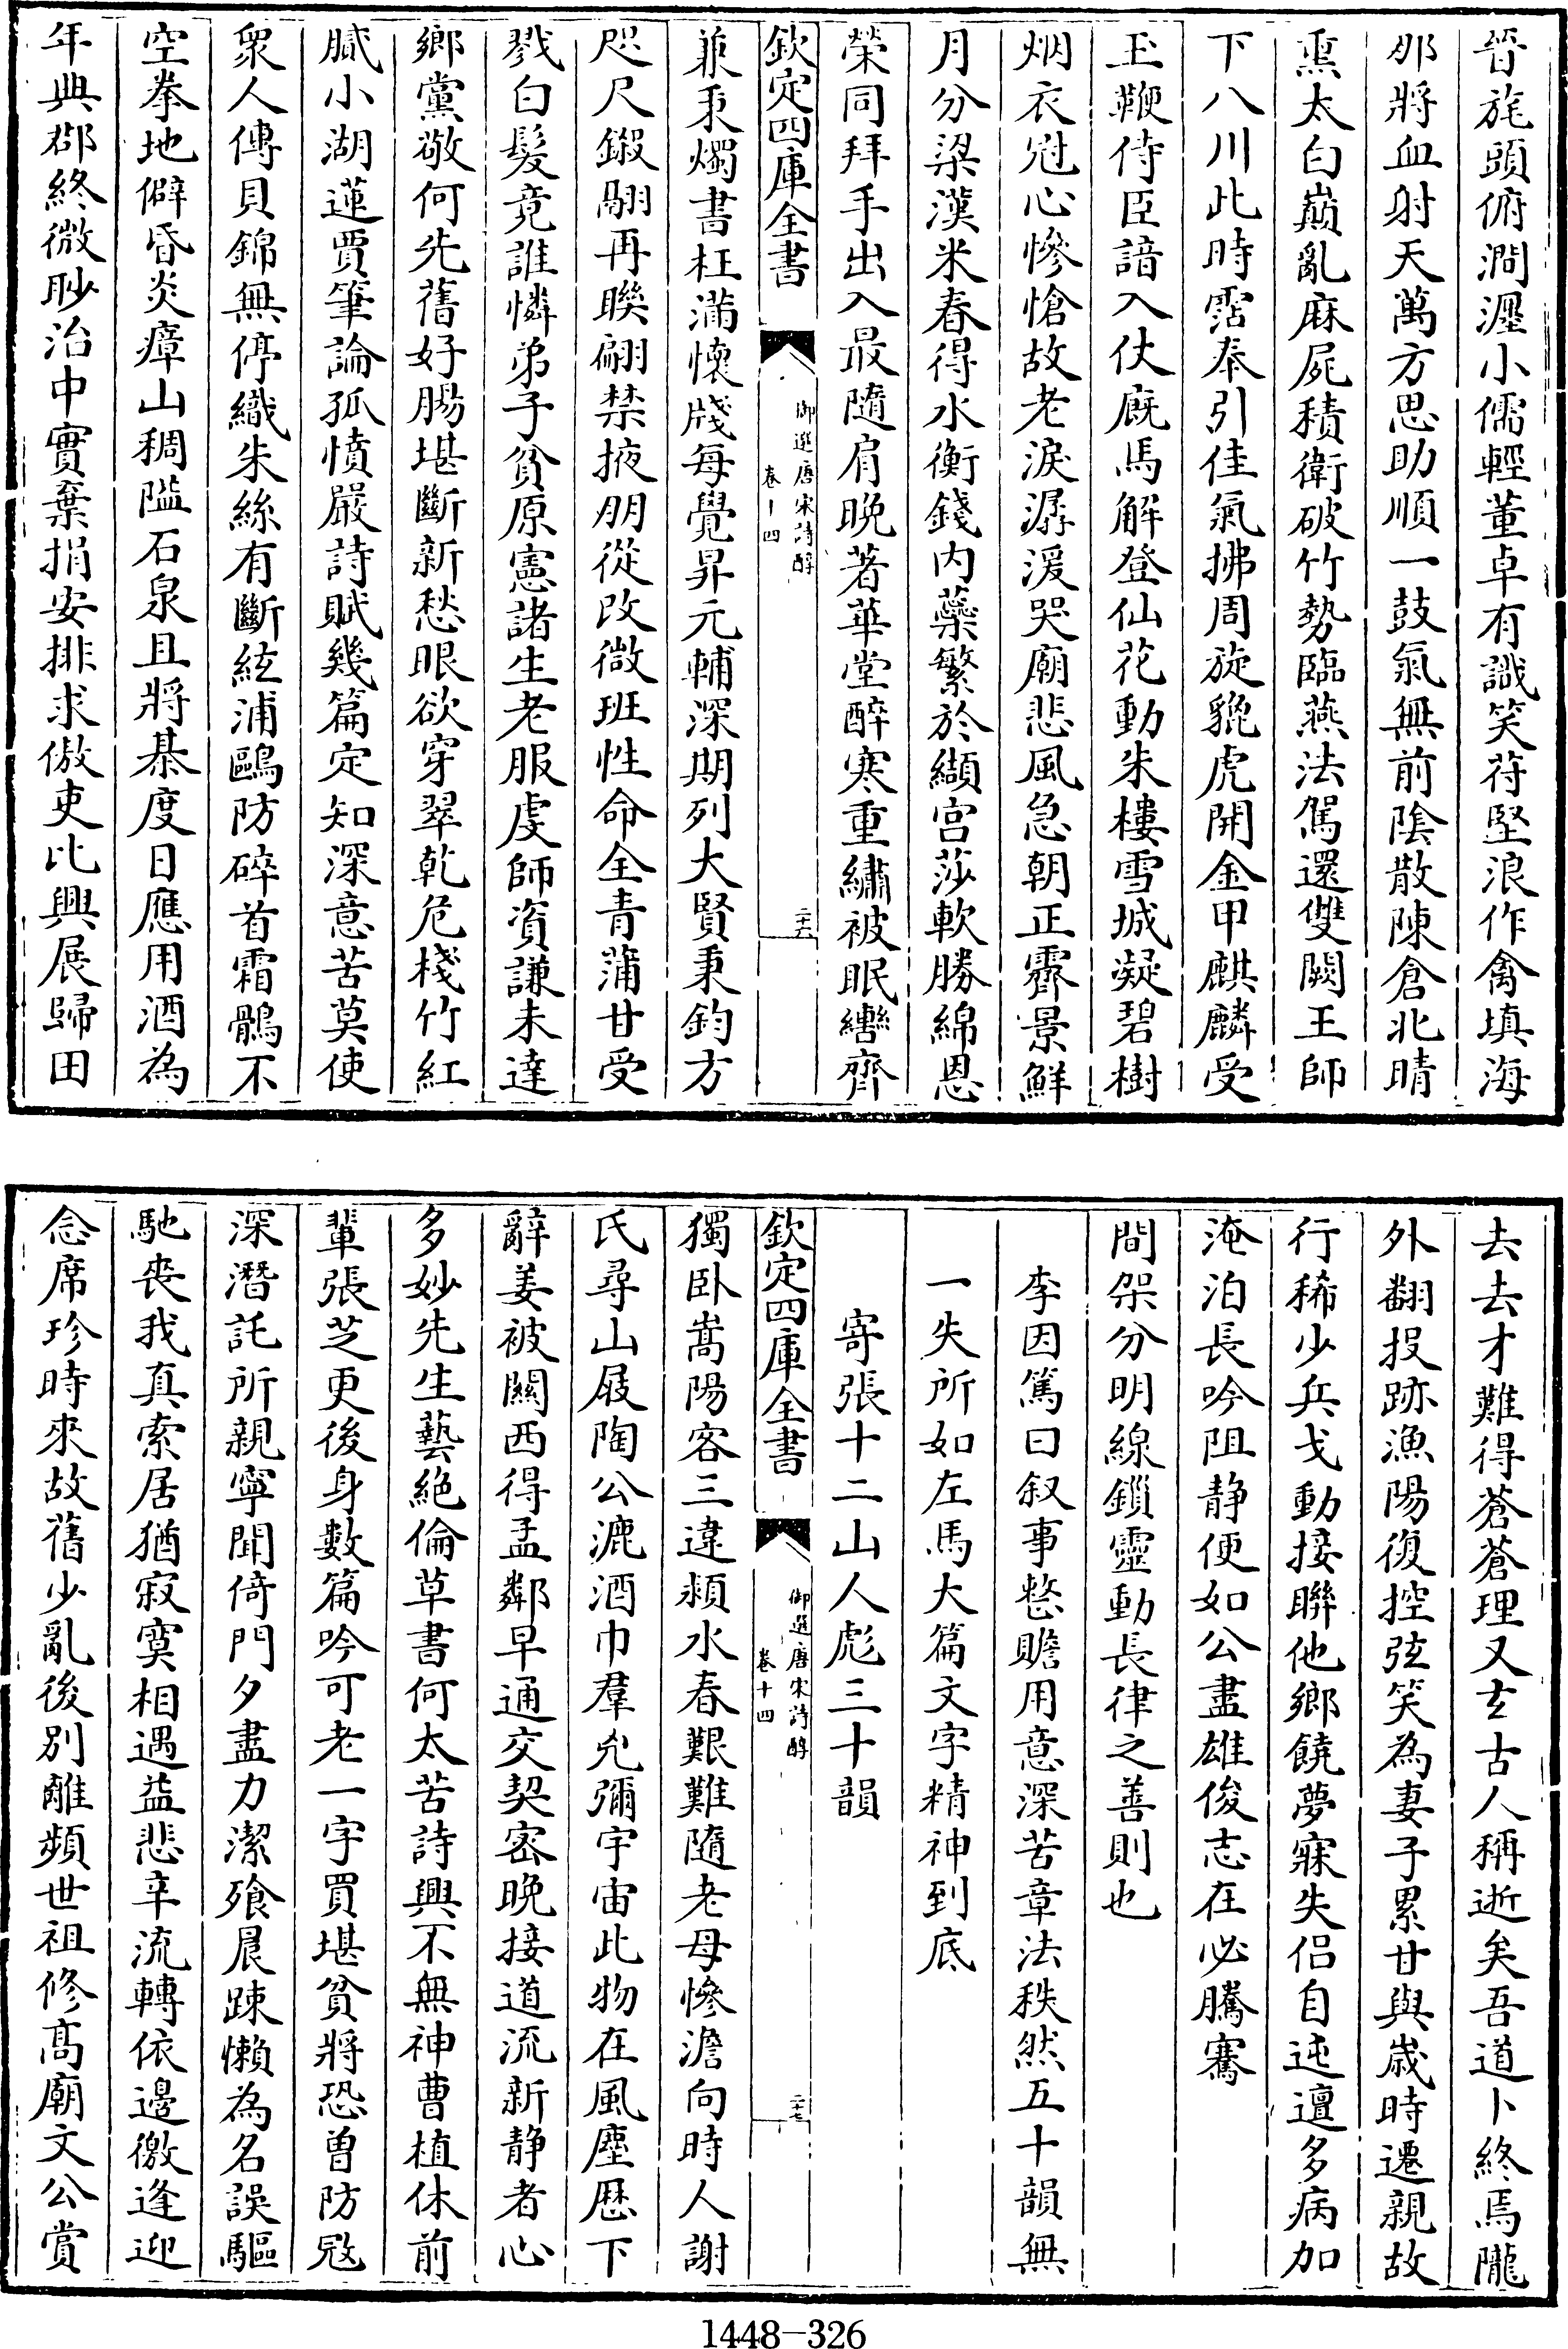 晉旄頭俯澗瀍小儒輕董卓有識笑苻堅浪作禽填海
那將血射天萬方思助順一鼓氣無前陰散陳倉北晴
熏太白巔亂麻屍積衛破竹勢臨燕法駕還雙闕王師
下八川此時霑奉引佳氣拂周旋貔虎開金甲麒麟受
玉鞭侍臣諳入仗廐馬解登仙花動朱樓雪城凝碧樹
烟衣冠心慘愴故老淚潺湲哭廟悲風急朝正霽景鮮
月分梁漢米春得水衡錢內蘂繁於纈宮莎軟勝綿恩
榮同拜手出入最隨肩晚著華堂醉寒重繡被眠轡齊
欽定四庫全書
御選唐宋詩醇
卷十四
二十六
兼秉燭書枉滿懷牋每覺昇元輔深期列大賢秉鈞方
咫尺鎩翮再聯翩禁掖朋從改微班性命全青蒲甘受
戮白髮竟誰憐弟子貧原憲諸生老服虔師資謙未達
鄉黨敬何先舊好腸堪斷新愁眼欲穿翠乾危棧竹紅
膩小湖蓮賈筆論孤憤嚴詩賦幾篇定知深意苦莫使
衆人傳貝錦無停織朱絲有斷絃浦鷗防碎首霜鶻不
空拳地僻昏炎瘴山稠隘石泉且將棊度日應用酒為
年典郡終微眇治中實棄捐安排求傲吏比興展歸田
去去才難得蒼蒼理又玄古人稱逝矣吾道卜終焉隴
外翻投跡漁陽復控弦笑為妻子累甘與歲時遷親故
行稀少兵戈動接聯他鄉饒夢寐失侶自迍邅多病加
淹泊長吟阻靜便如公盡雄俊志在必騰騫
間架分明線鎻靈動長律之善則也
李因篤曰叙事整贍用意深苦章法秩然五十韻無
一失所如左馬大篇文字精神到底
寄張十二山人彪三十韻
欽定四庫全書
御選唐宋詩醇
卷十四
二十七
獨卧嵩陽客三違潁水春艱難隨老母慘澹向時人謝
氏尋山屐陶公漉酒巾羣兇彌宇宙此物在風塵歷下
辭姜被關西得孟鄰早通交契密晚接道流新靜者心
多妙先生藝絶倫草書何太苦詩興不無神曹植休前
輩張芝更後身數篇吟可老一字買堪貧將恐曾防寇
深潛託所親寧聞倚門夕盡力潔飱晨踈懶為名誤驅
馳喪我真索居猶寂寞相遇益悲辛流轉依邊徼逢迎
念席珍時來故舊少亂後別離頻世祖修高廟文公賞
1448-326